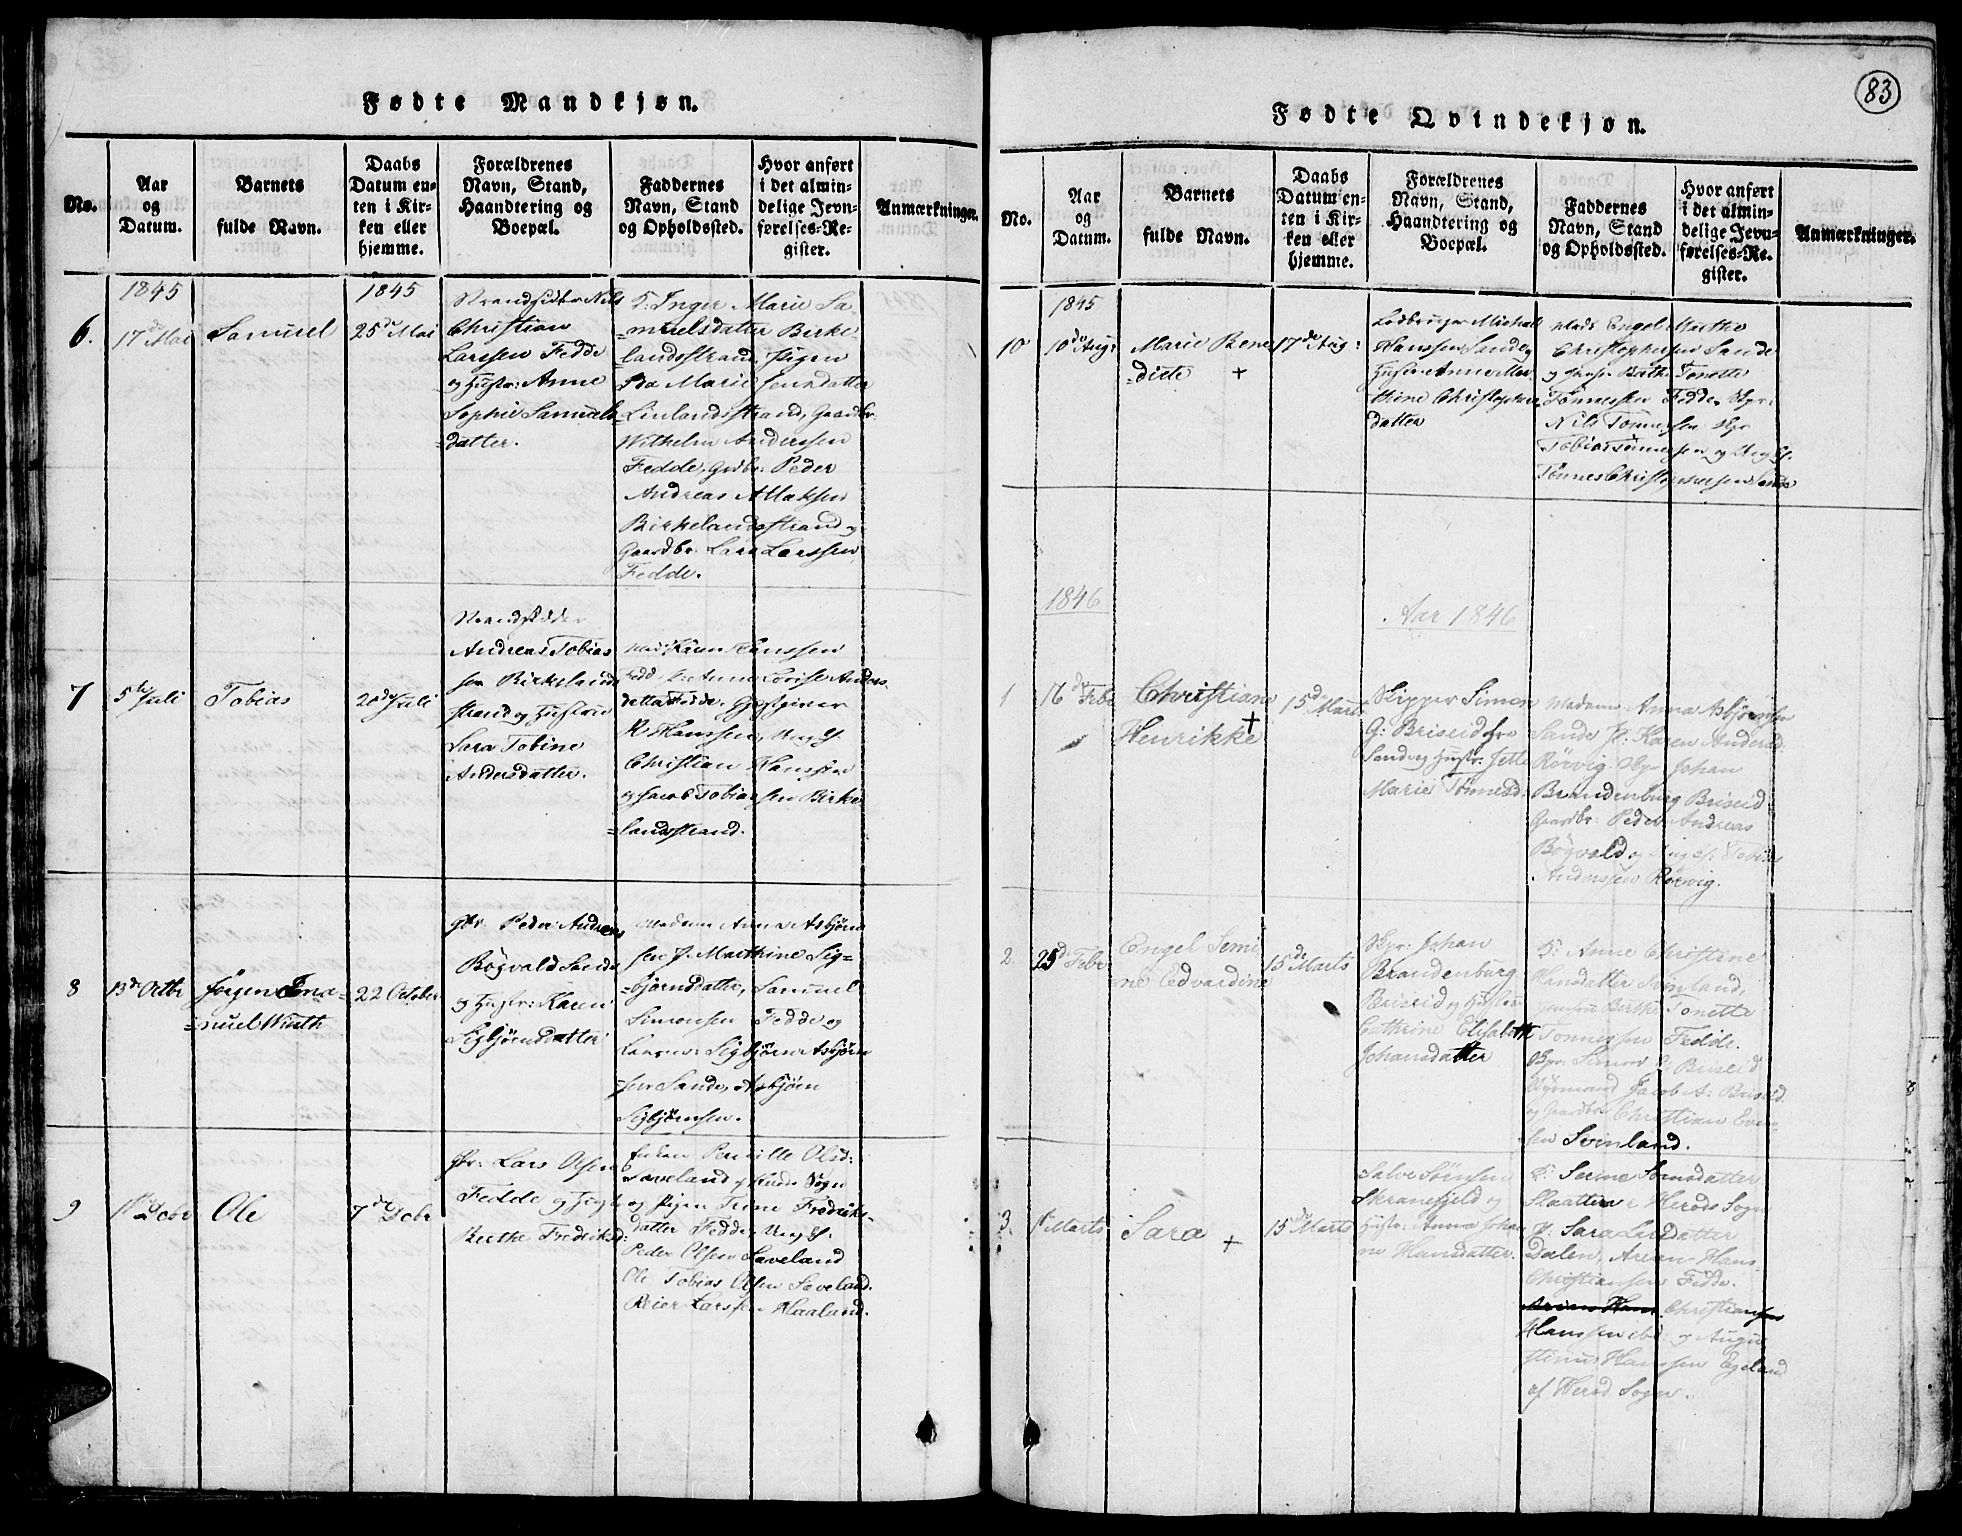 Fødte Mandkjøn.
No.
Aar
og
Datum.
Barnets
fulde Navn.
Daabs
Datum en-
ten i Kir-
ken eller
hjemme.
Forældrenes
Navn, Stand,
Haandtering og
Boepæl.
Faddernes
Navn, Stand
og Opholdssted.
Hvor anført
i det almin-
delige Jevn-
førelses-Re-
gister.
Anmærkninger.
1845
6.
17d Mai
Samuel
1845
25d Mai
Strandsidder Nils
Christian
Larssen Fedde
og Hustr: Anne
Sophie Samuels
=datter.
P. Inger Marie Sa-
=muelsdatter Birke
=landsstrand, Pigen
Ida Marie Jensdatter
Linlandsstrand, Gaardbr.
Wilhelm Anderssen
Fedde, Grdbr. Peder
Andreas Allaksen
Birkelandsstrand og
Gaardbr. Lars Larssen
Fedde.
7
5te Juli
Tobias
20d Juli
Strandsidder
Andreas Tobias
sen Birkelands
strand og Hustru
Sara Tobine
Andersdatter.
Mad: Karen Hanssen
Fedde P: Anne Lovise Anders-
datter Fedde, Gjestgiver
R. Hanssen, Ung K.
Christian Hanssen
og Jacob Tobiassen Birke
=landsstrand.
8
13d Octbr
Jørgen Ema=
=nuel Winth
22 October
Gbr. Peder Andreas
Bøgvald Sande
og Hustr: Karen
Sigbjørnsdatter
Madam Anna Asbjørn
sen P. Marthine Sig=
=bjørnsdatter, Samuel
Simonsen Fedde og
Sigbjørn Asbjørn
sen Sande, Asbjørn
Sigbjørnsen.
9
1ste Debr
Ole
7d Debr
Gbr: Lars Olsen
Fedde og Hustr
Berthe Fredriksd:
Enken Pernille Olsd:
Sæveland af Sogn
og Pigen Trine Fredriks-
datter Fedde, Ung K.
Peder Olsen Sæveland
Ole Tobias Olsen Sæveland.
Reier Larssen Haaland.
83
Fødte Qvindekjøn.
No.
Aar
og
Datum.
Barnets
fulde Navn.
Daabs
Datum en-
ten i Kir-
ken eller
hjemme.
Forældrenes
Navn, Stand,
Haandtering og
Boepæl.
Faddernes
Navn, Stand
og Opholdssted.
Hvor anført
i det almin-
delige Jevn-
førelses-Re-
gister.
Anmærkninger.
1845
10
10d Aug:
Marie Bene
=dicte +
17d Aug:
Michael
Hanssen Sande
Hustr Anne Mar
thine Christophers
datter
Mads Engel Marthe
Christophersen Sande
og Hustr. Bathe Tonette
Tönnessen Fedde, Skpr:
Nils Tönnessen Skpr
Tobias Tönnessen og Ung K.
Tönnes Christophersen Sande
1846
Aar 1846
1
16d Febr
Christiane
Henrikke +
15d Marts
Skipper Simon
G: Briseid fra
Sande og Hustr: Jette
Marie Tønnesd.
Madam Anna Asbjørnsen
Sande P: Karen Andersd.
Rörvig. Skpr Johan
Brandenburg Briseid
Gaardbr: Peder Andreas
Bøgvald og Ung K: Tobias
Anderssen Rörvig.
2.
25d Febr
Engel Semi
ne Edvardine
15de Marts
Skpr: Johan
Brandenburg
Briseid og Hustr
Cathrine Elisabeth
Johansdatter
P. Anne Christine
Hansdatter Svinland,
Birthe Tonette
Tönnessen Fedde.
Skpr. Simon G. Briseid
Jacob A: Briseid
og Gaardbr Christian Ever
sen Svinland.
3.
1st Marts
Sara +
15de Marts
Salve Sörensen
Skranefjeld og
Hustr: Anna Johan
ne Hansdatter.
P. Serine
i Herods Sogn
P: Sara Larsdatter
Dalen, Arian Hans
Christiansen Fedde.
Arian Hans Christiansen
Hanssen ibd og Augu
stinus Hanssen Egeland
af Herod Sogn.